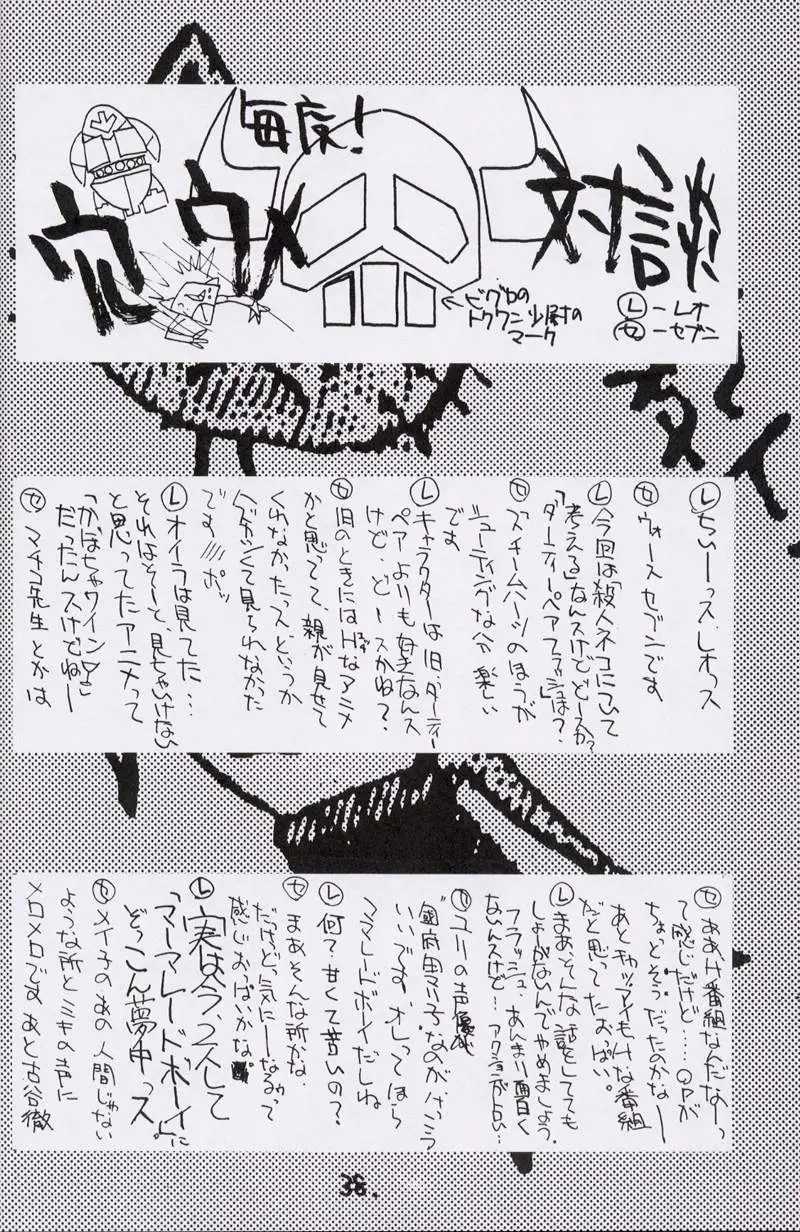 毎度!
ウメ
対談
←ビグロの
トクワン少尉の
マーク
Ⓛ－レオ
㋝－セブン
Ⓛちぃーっス、レオっス
㋝ウォースセブンです
Ⓛ今回は「殺人ネコについて
考える」なんスけどどースか?
「ダーティーペアフラッシュ」は?
㋝ズームハーツのほうが
シューティングな分楽しい
です
Ⓛキャラクターは旧ダーティー
ペアよりも好きなんス
けど、どースかね?
㋝旧のときにはHなアニメ
かと思ってて、親が見せて
くれなかったっス、というか
ハズカシくて見られなかった
です///ポッ
Ⓛオイラは見てた…
それはそーと、見ちゃいけない
と思ってたアニメって
「かぼちゃワイン♡」
だったんスけどねー
㋝マチコ先生とかは
㋝ああH番組なんだなーっ
て感じだけど…。QPが
ちょっとそうだったのかなー
あとキャッツアイもHな番組
だと思ってたおっぱい。
Ⓛまあ、そんな話をしてても
しょーがないんでやめましょう。
フラッシュ、あんまり面白く
ないんスけど…アクションが白い…
㋝ユリの声優が
"國府田マリ子"なのがけっこう
いいです、オレってほら
ママレードボイだしね
Ⓛ何?甘くて苦いの?
㋝まあそんな所かな
だけど気になるぅって
感じおっぱいかな。
Ⓛ実は今、2人して
「マーマレードボーイ」に
ぞっこん夢中っス。
㋝メイ子のあの人間じゃない
ような所とミキの声に
メロメロです あと古谷徹
38.